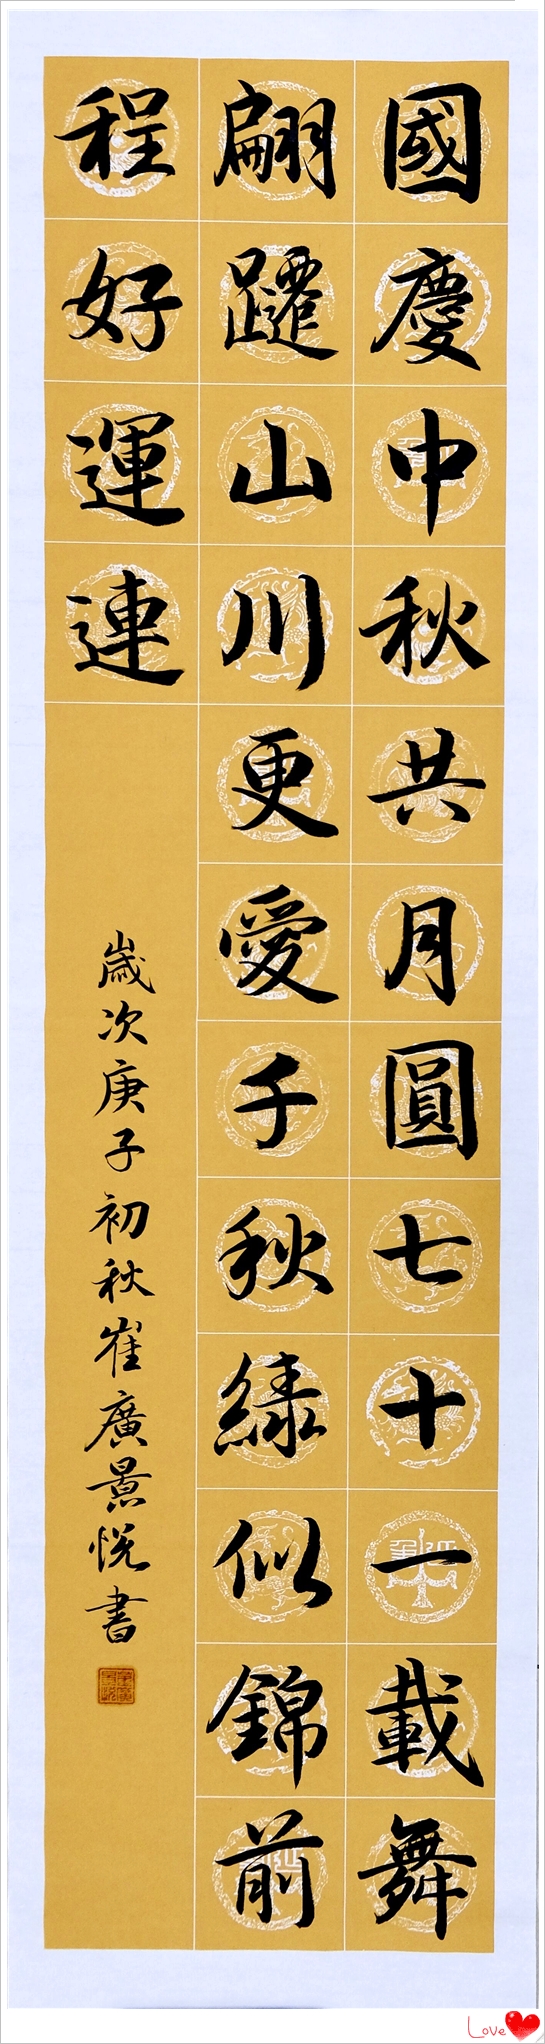 國慶中秋共月圓七十一載舞
翩躚山川更愛千秋綠似錦前
程好運連
歲次庚子初秋崔廣景悅書
Love